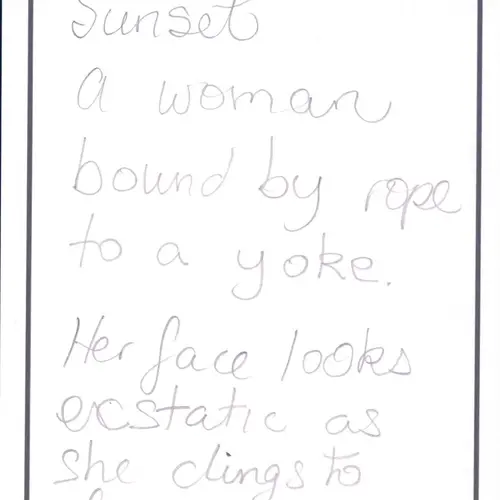 Sunset
A woman
bound by rope
to a yoke.
Her face looks
ecstatic as
she clings to